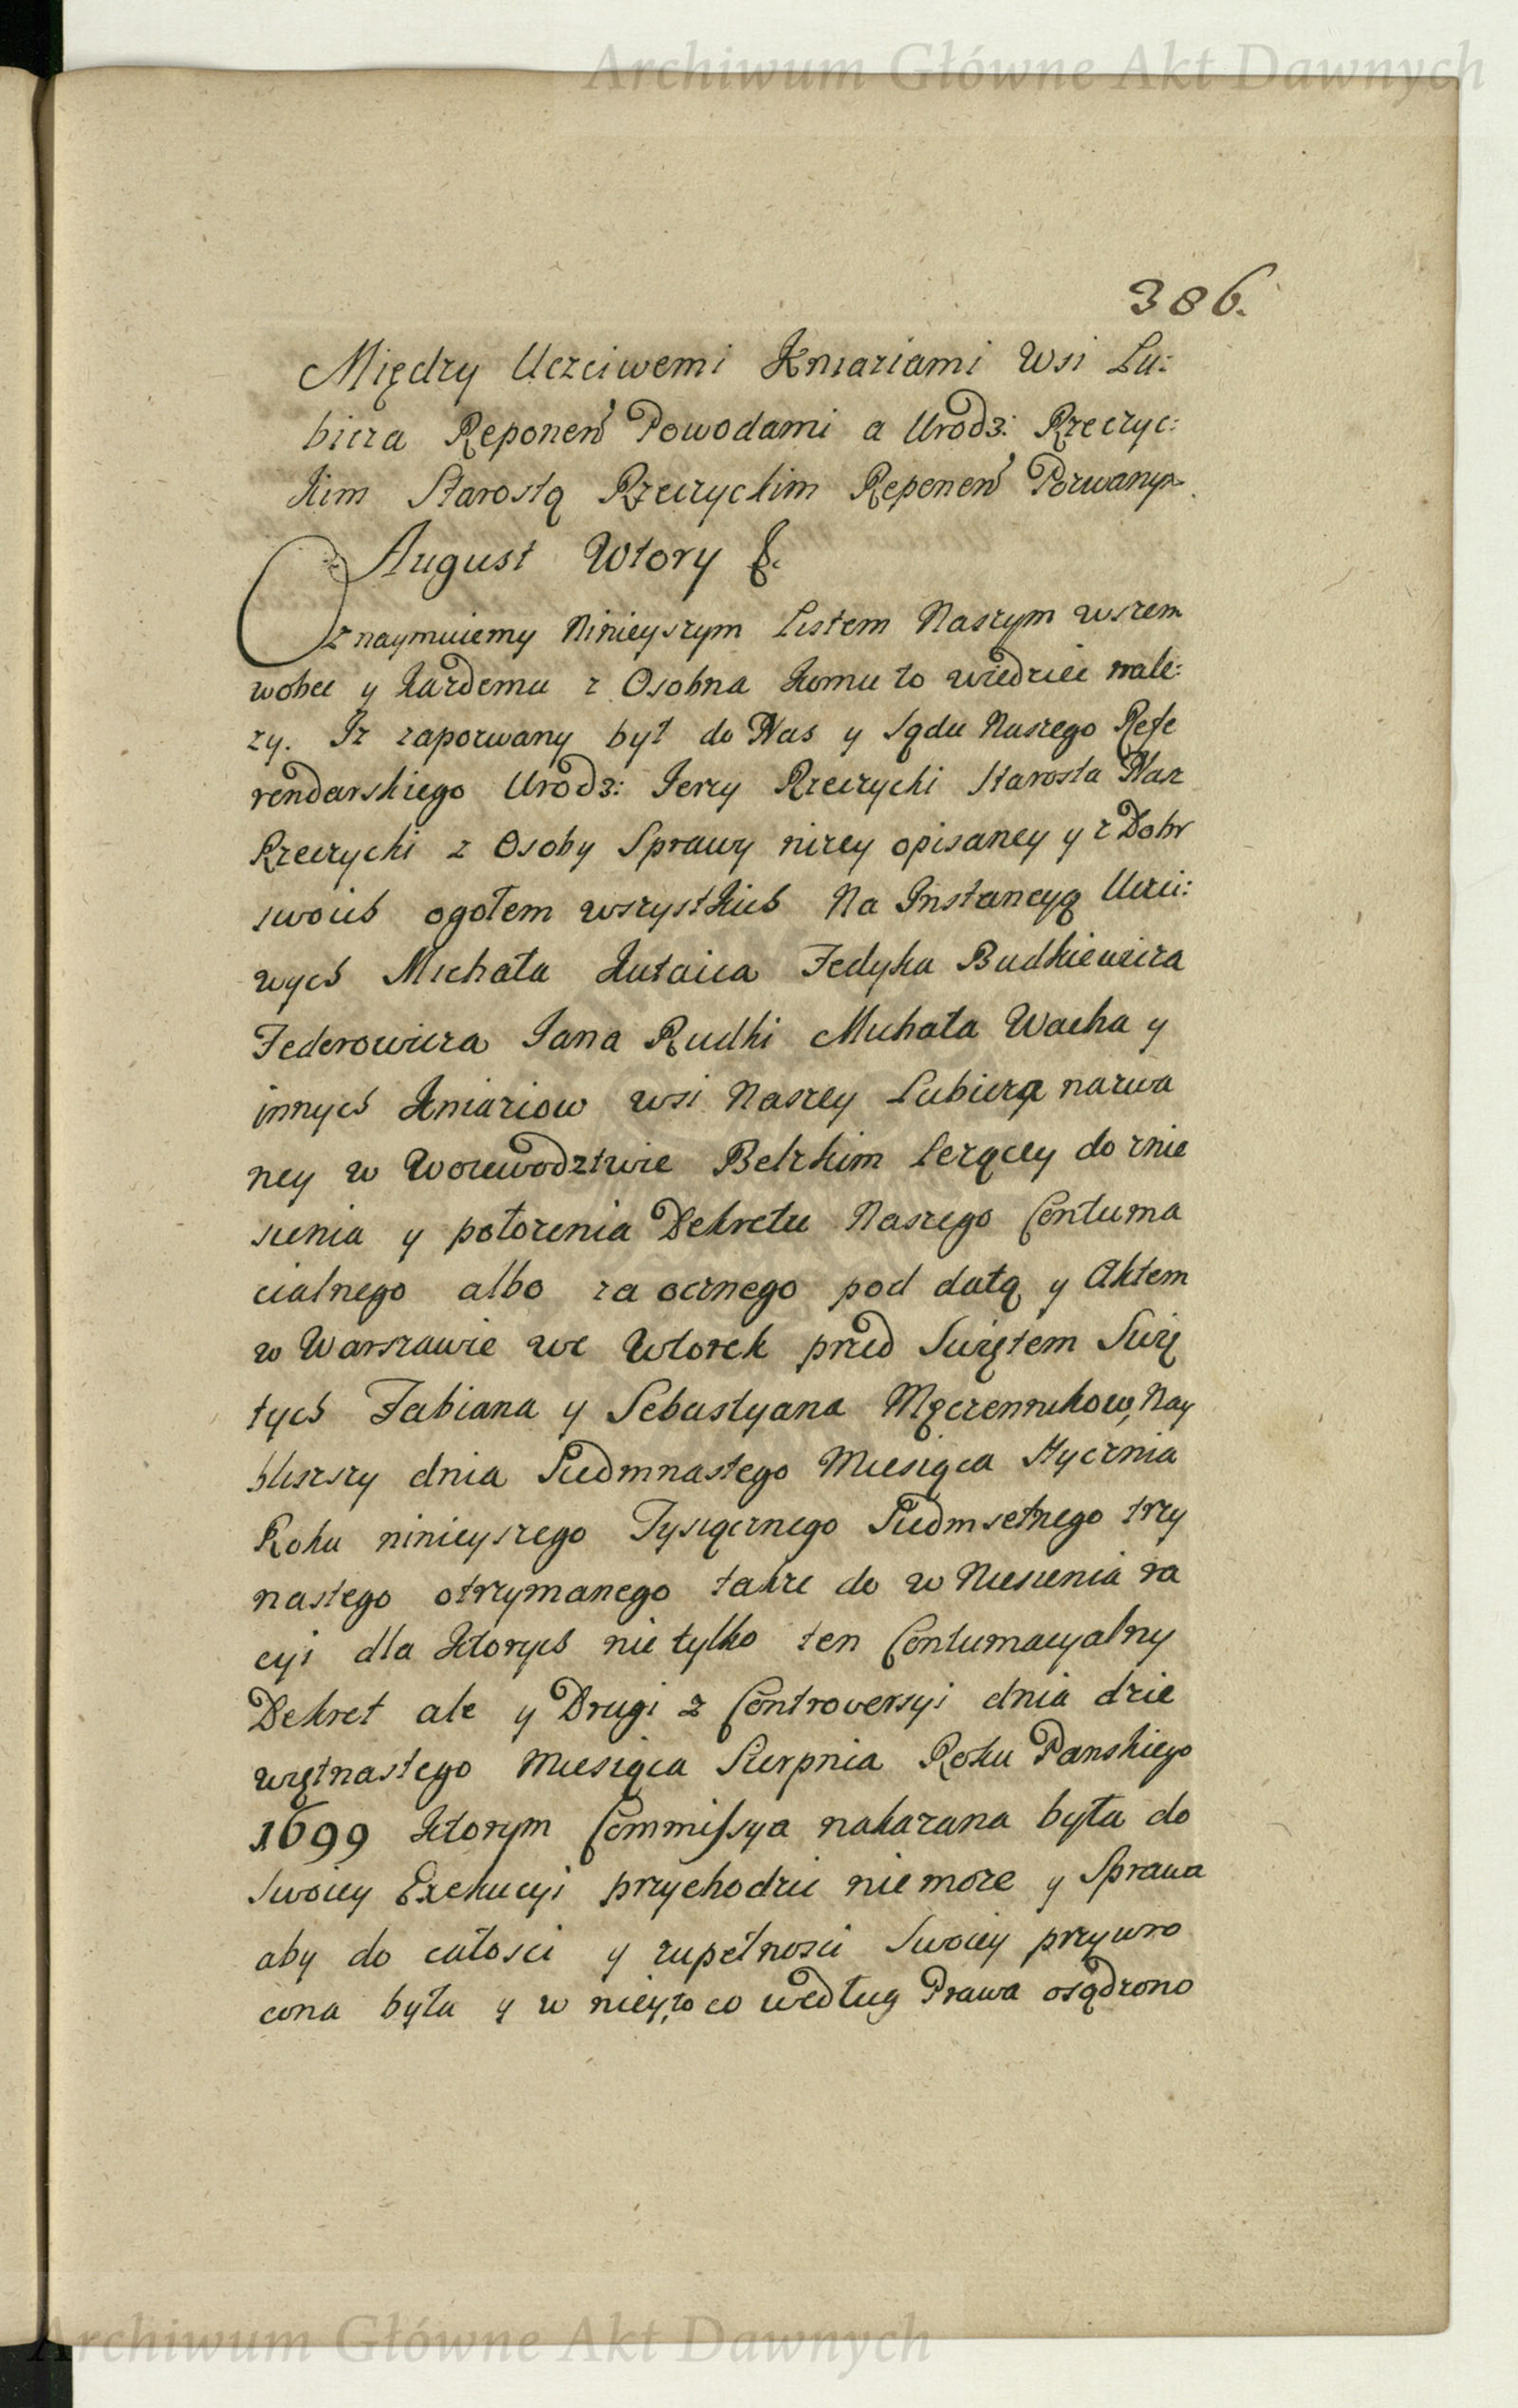 Archiwum Główne Akt Dawnych
386.
Między Uczciwemi Kniaziami Wsi Lu:
bicza Reponen Powodami a Urodz: Rzeczyc:
kim Starostą Rzeczyckim Reponen Pozwanym
August Wtory &.
Oznaymuiemy Ninieyszym Listem Naszym wszem
wobec y każdemu z Osobna komu to wiedziec nale:
zy. Iz zapozwany był do Nas y Sądu Naszego Refe
rendarskiego Urodz: Jerzy Rzeczycki Starosta Nasz
Rzeczycki z Osoby Sprawy nizey opisaney y z Dobr
swoich ogołem wszystkich Na Instancyą Ucci:
wych Michała Fedyka Budkiewicza
Federowicza Jana Rudki Michała Wacha y
innych Kniaziow wsi Naszey Lubicza nazwa
ney w Woiewodztwie Belzkim Lezącey do znie
sienia y połozenia Dekretu Naszego Contuma
cialnego albo za ocznego pod datą y Aktem
w Warszawie we Wtorek przed Swiętem Swię
tych Fabiana y Sebastyana Męczennikow, Nay
bliszszy dnia Siedmnastego Miesiąca Stycznia
Roku ninieyszego Tysiącznego Siedmsetnego trzy
nastego otrzymanego takze do w Niesienia ra
cyi dla ktorych nie tylko ten Contumacyalny
Dekret ale y Drugi z Controversyi dnia dzie
więtnastego Miesiąca Sierpnia Roku Panskiego
1699 ktorym Commissya nakazana była do
Swoiey Exekucyi przychodzic niemoze y Sprawa
aby do całosci y zupełnosci Swoiey przywro
cona była y w niey, to co według Prawa osądzono
Archiwum Główne Akt Dawnych